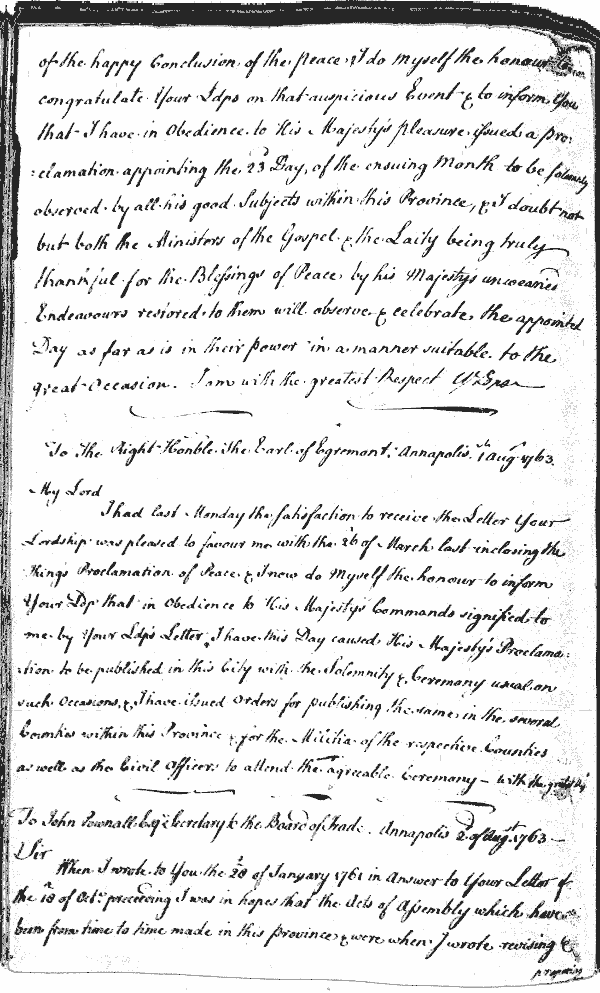 of the happy Conclusion of the peace & I do myself the honour to
congratulate Your Ldps on that auspicious Event & to inform You
that I have in Obedience to His Majesty's pleasure issued a pro:
:clamation appointing the 23 Day of the ensuing Month to be solemnly
observed by all his good Subjects within this Province, & I doubt not
but both the Ministers of the Gospel & the Laity being truly
thankful for the Blessings of Peace by his Majesty's unwearied
Endeavours restored to them will observe & celebrate the appointed
Day as far as is in their power in a manner suitable to the
great Occasion. I am with the greatest Respect
To The Right Honble The Earl of Egremont. Annapolis 1st Augt 1763.
My Lord
I had last Monday the satisfaction to receive the Letter Your
Lordship was pleased to favour me with the 26 of March last inclosing the
King's Proclamation of Peace & I now do Myself the honour to inform
Your Ldp that in Obedience to His Majesty's Commands signified to
me by Your Ldp's Letter, I have this Day caused His Majesty's Proclama:
:tion to be published in this City with the Solemnity & Ceremony usual on
such Occasions, & I have issued Orders for publishing the same in the several
Counties within this Province & for the Militia of the respective Counties
as well as the Civil Officers to attend the agreeable Ceremony — with the
To John Pownall Esqr Secretary to the Board of Trade. Annapolis 2d of Augt 1763 —
Sir
When I wrote to You the 28 of January 1761 in Answer to Your Letter of
the 18 of Octr preceeding I was in hopes that the Acts of Assembly which have
been from time to time made in this province & were when I wrote revising &
preparing